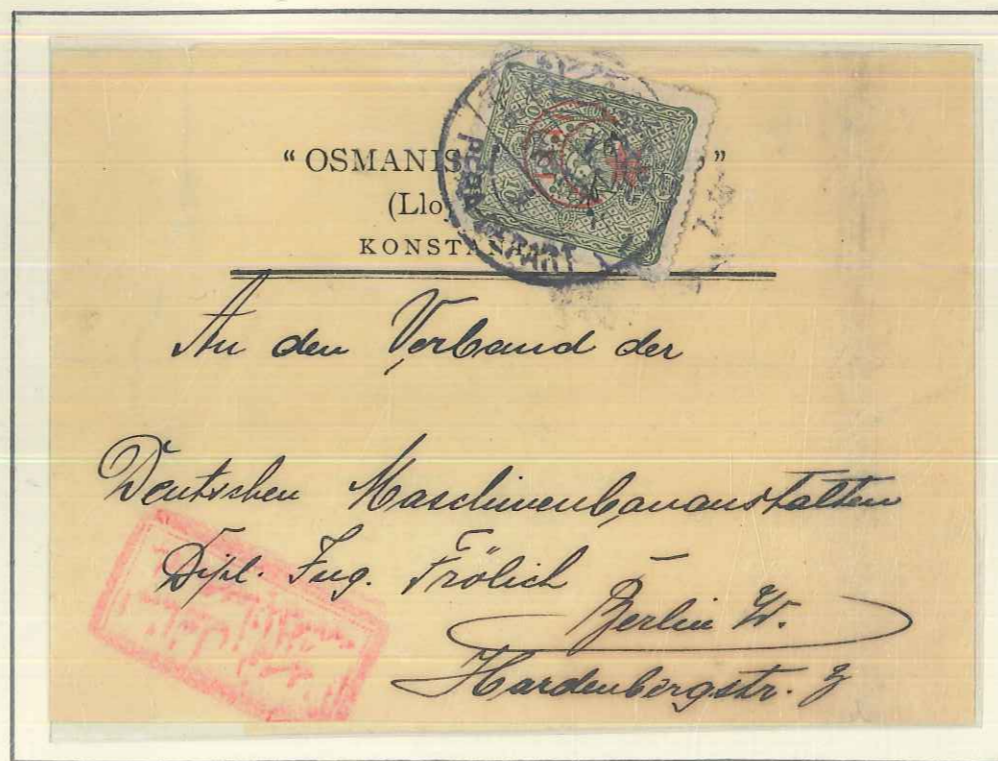 “ OSMANIS ”
(Llo
KONSTAN
PERA DEPART
10 10
An den Verband der
Deutschen Maschinenbauanstalten
Dipl. Ing. Frölich
Berlin W.
Hardenbergstr. 3